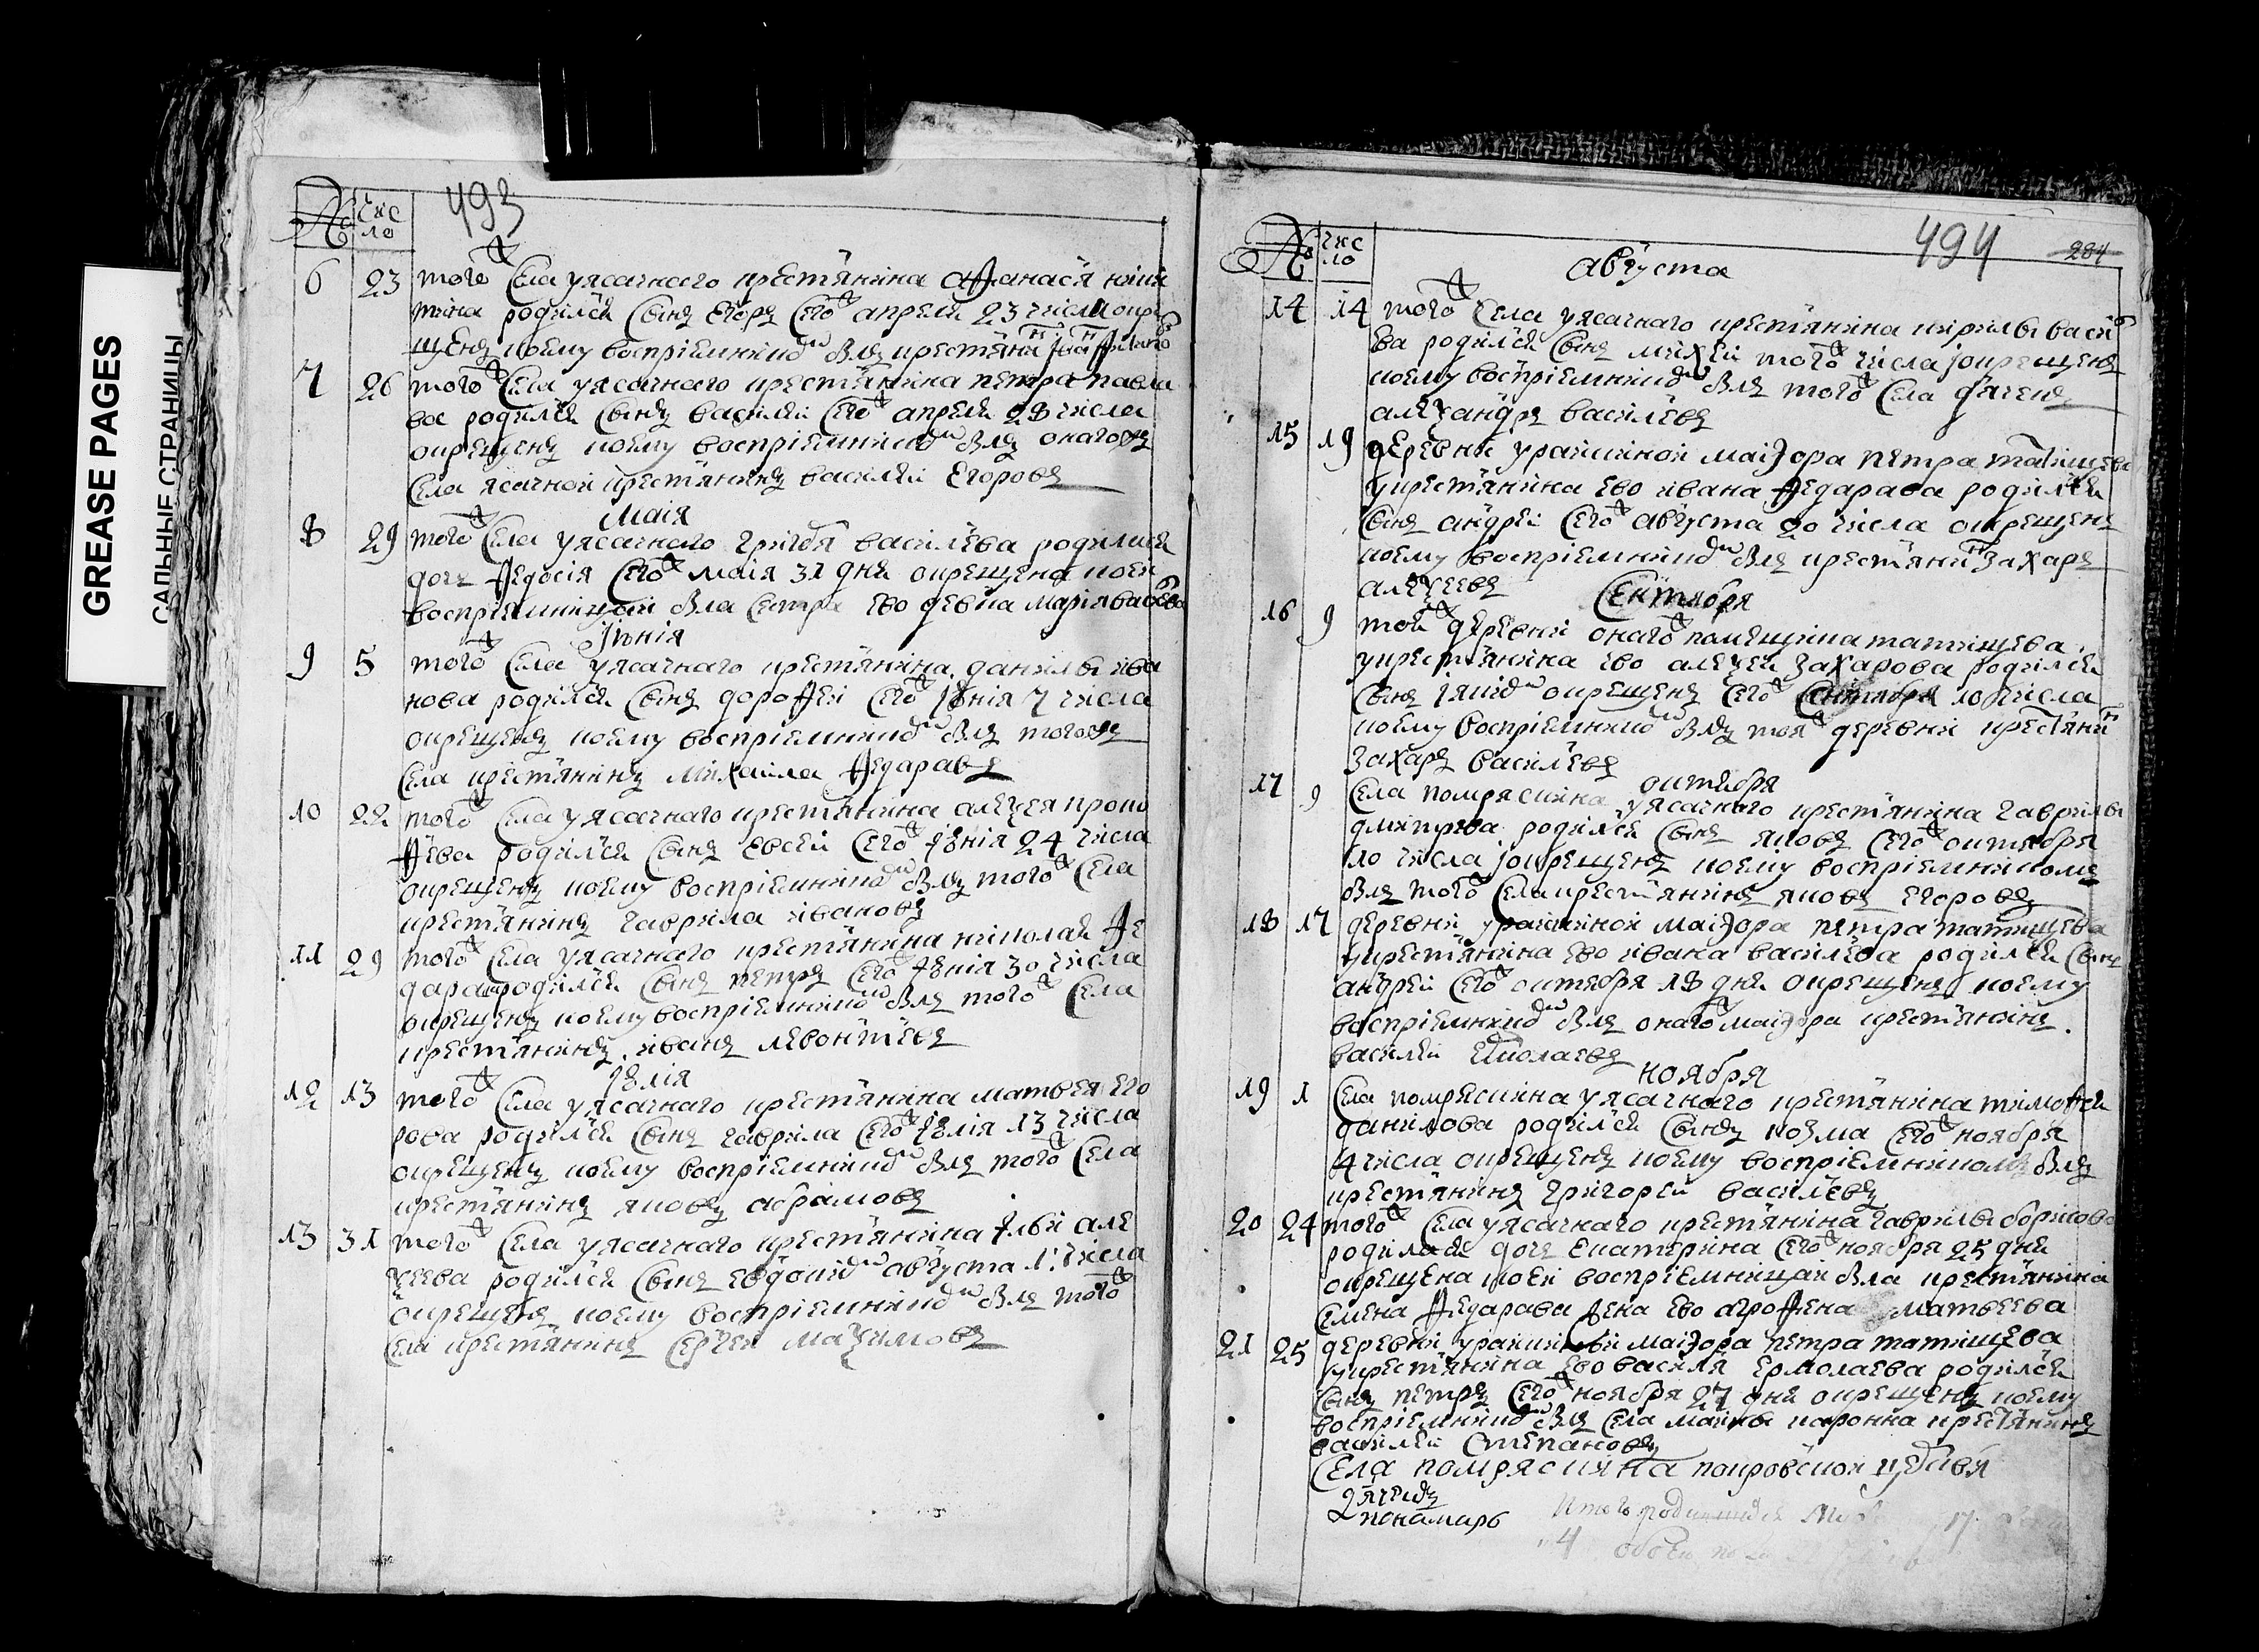 GREASE PAGES
САЛЬНЫЕ СТРАНИЦЫ
№ Чис
ло
493
6 23 того ж села у ясачнаго крестьянина афанасья ники
тина родился сынъ егоръ сего ж апреля 23 числа окре
щенъ коему воспріемникомъ былъ крестьянинъ іванъ
7 26 того ж села у ясачнаго крестьянина петра павло
ва родился сынъ василей сего ж апреля 28 числа
окрещенъ коему воспріемникомъ былъ онагожъ
села ясачной крестьянинъ василей егоровъ
маія
8 29 того ж села у ясачнаго григорья васильева родилася
дочь федосія сего ж маія 31 дня окрещена коей
воспріемницей была сестра ево девка марія
іюнія
9 5 того ж села у ясачнаго крестьянина данилы ива
нова родился сынъ дорофей сего ж іюнія 7 числа
окрещенъ коему воспріемникомъ былъ тогожъ
села крестьянинъ михаила федаравъ
10 22 того ж села у ясачнаго крестьянина алеѯея проко
фьева родился сынъ евсей сего ж іюнія 24 числа
окрещенъ коему воспріемникомъ былъ того ж села
крестьянинъ гаврила ивановъ
11 29 того ж села у ясачнаго крестьянина николая фе
дарава родился сынъ петръ сего ж іюнія 30 числа
окрещенъ коему воспріемникомъ былъ того ж села
крестьянинъ иванъ левонтьевъ
іюлія
12 13 того ж села у ясачнаго крестьянина матвея его
рова родился сынъ гаврила сего ж іюлія 13 числа
окрещенъ коему воспріемникомъ былъ того ж села
крестьянинъ яковъ абрамовъ
13 31 того ж села у ясачнаго крестьянина ильи але
ѯеева родился сынъ евдокимъ августа 1 числа
окрещенъ коему воспріемникомъ былъ того ж
села крестьянинъ сергей маѯимовъ
№ Чис
ло
494 284
августа
14 14 того ж села у ясачнаго крестьянина кирилы василь
ева родился сынъ михей того ж числа і окрещенъ
коему воспріемникомъ былъ того ж села дьячекъ
алеѯандръ васильевъ
15 19 деревни урайкиной маіора петра татищева
у крестьянина ево ивана федарава родился
сынъ андрей сего ж августа 20 числа окрещенъ
коему воспріемникомъ былъ крестьянинъ захаръ
алеѯеевъ
сентября
16 9 той ж деревни онаго ж помещика татищева
у крестьянина ево алеѯея захарова родился
сынъ іякимъ окрещенъ сего ж сентября 10 числа
коему воспріемникомъ былъ тоя ж деревни крестьянинъ
захаръ васильевъ
октября
17 9 села помряскина у ясачнаго крестьянина гаврилы
дмитрева родился сынъ яковъ сего ж октября
10 числа і окрещенъ коему воспріемникомъ
былъ того ж села крестьянинъ яковъ егоровъ
18 17 деревни урайкиной маіора петра татищева
у крестьянина ево ивана васильева родился сынъ
андрей сего ж октября 18 дня окрещенъ коему
воспріемникомъ былъ онаго ж маіора крестьянинъ
василей ермолаевъ
ноября
19 1 села помряскина у ясачнаго крестьянина тимофея
данилова родился сынъ козма сего ж ноября
4 числа окрещенъ коему воспріемникомъ былъ
крестьянинъ григорей васильевъ
20 24 того ж села у ясачнаго крестьянина гаврилы борисова
родилася дочь екатерина сего ж ноября 25 дня
окрещена коей воспріемницай была крестьянина
семена федарава жена ево агрофена матвеева
21 25 деревни урайкиной маіора петра татищева
у крестьянина ево василья ермолаева родился
сынъ петръ сего ж ноября 27 дня окрещенъ коему
воспріемникомъ былъ села майны крестьянинъ
василей степановъ
села помряскина покровской церкви
дьячекъ
пономарь
Итого родившихся
17
4